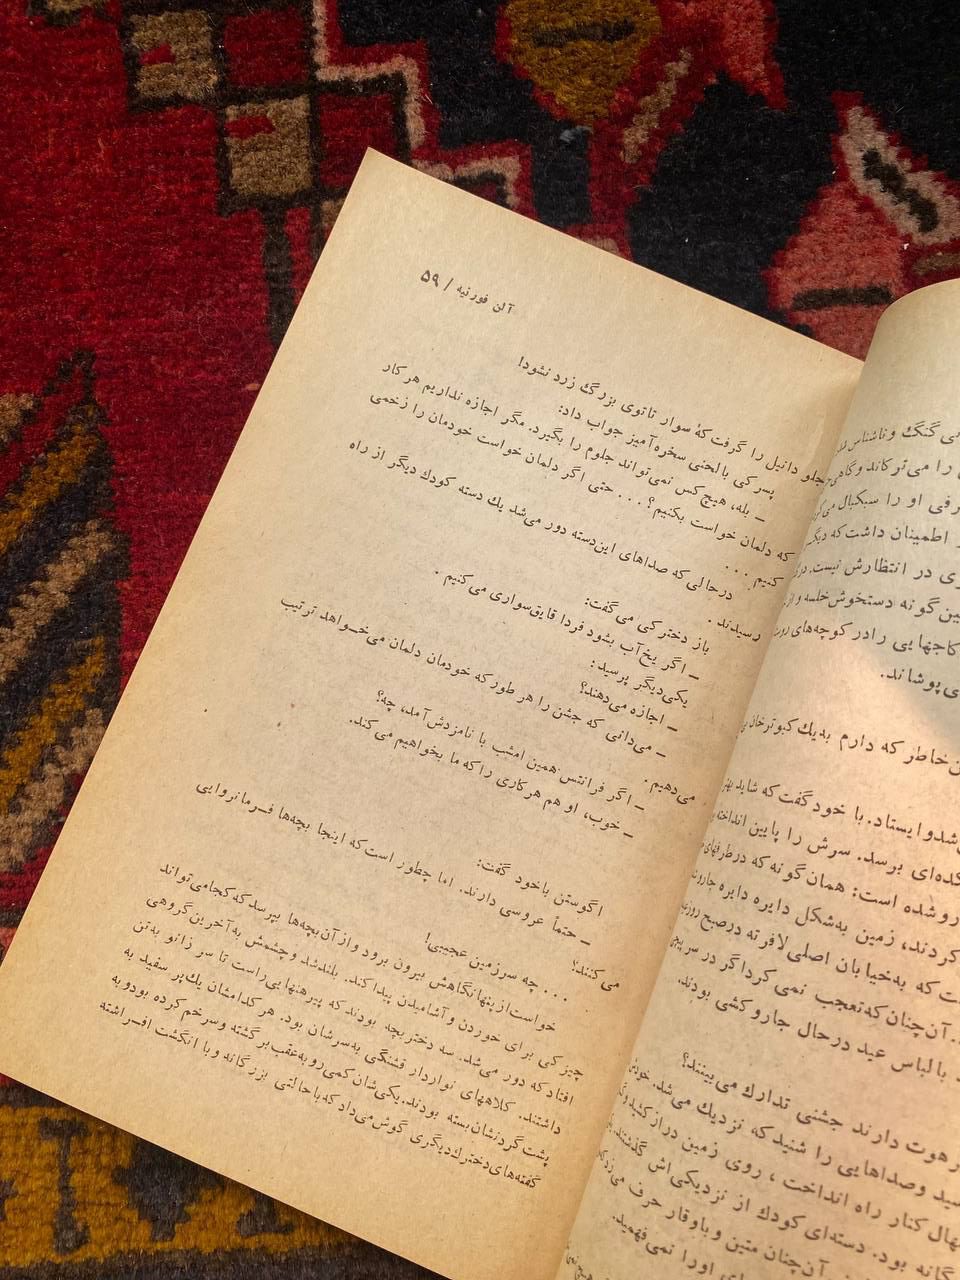 آلن فورنیه / ۵۹
جلو دانیل را گرفت که سوار تاتوی بزرگ زرد نشود!
پسرکی بالحنی سخره‌آمیز جواب داد:
ـ بله، هیچ کس نمی‌تواند جلوم را بگیرد. مگر اجازه نداریم هر کار
که دلمان خواست بکنیم؟... حتی اگر دلمان خواست خودمان را زخمی
کنیم ...
درحالی که صداهای این‌دسته دور می‌شد یك دسته کودك دیگر از راه
رسیدند .
باز دخترکی می‌گفت:
ـ اگر یخ‌آب بشود فردا قایق‌سواری می‌کنیم .
یکی‌دیگر پرسید:
ـ اجازه می‌دهند؟
ـ می‌دانی که جشن را هر طور که خودمان دلمان می‌خواهد ترتیب
می‌دهیم .
ـ اگر فرانتس همین امشب با نامزدش‌آمد، چه؟
ـ خوب، او هم هرکاری را که ما بخواهیم می‌کند.
اگوستن باخود گفت:
ـ حتماً عروسی دارند. اما چطور است که اینجا بچه‌ها فرمانروایی
می‌کنند؟
... چه سرزمین عجیبی!
خواست‌از‌پنهانگاهش بیرون برود و‌از‌آن‌بچه‌ها بپرسد که‌کجا‌می‌تواند
چیزکی برای خوردن و‌آشامیدن پیدا‌کند. بلند‌شد و‌چشمش به‌آخرین‌گروهی
افتاد‌که دور می‌شد. سه دختربچه بودند که پیرهنهایی‌راست تا سر زانو به‌تن
داشتند. کلاههای نواردار قشنگی به‌سرشان بود. هر کدامشان یك‌پر سفید به
پشت گردنشان‌بسته بودند. یکی‌شان کمی‌رو‌به‌عقب‌برگشته و‌سر‌خم کرده بود‌و‌به
گفته‌های‌دخترك‌دیگری گوش‌می‌داد که‌با‌حالتی بزرگانه و‌با انگشت افراشته
گنگ و‌ناشناس
را می‌ترکاند و‌گاهی
او را سبکبال
اطمینان داشت که
در انتظارش نیست.
گونه دستخوش‌خلسه و
کاجهایی را‌در کوچه‌های
پوشاند.
خاطر که دارم به‌یك کبوترخان
شد‌و‌ایستاد. با خود گفت که شاید
برسد. سرش را پایین انداخته
شده است: همان گونه که در‌طرفهای
کردند، زمین به‌شکل دایره دایره
که به‌خیابان اصلی‌لافرته در‌صبح
آن‌چنان که‌تعجب نمی‌کرد‌اگر در سر
بالباس عید درحال جاروکشی بودند.
هوت دارند جشنی تدارك می‌بینند؟
و‌صداهایی را شنید که نزدیك می‌شد.
کنار راه انداخت ، روی زمین دراز‌کشید
بود. دسته‌ای کودك از نزدیکی‌اش گذشتند
آن‌چنان متین و‌باوقار حرف
او‌را نمی‌فهمید.